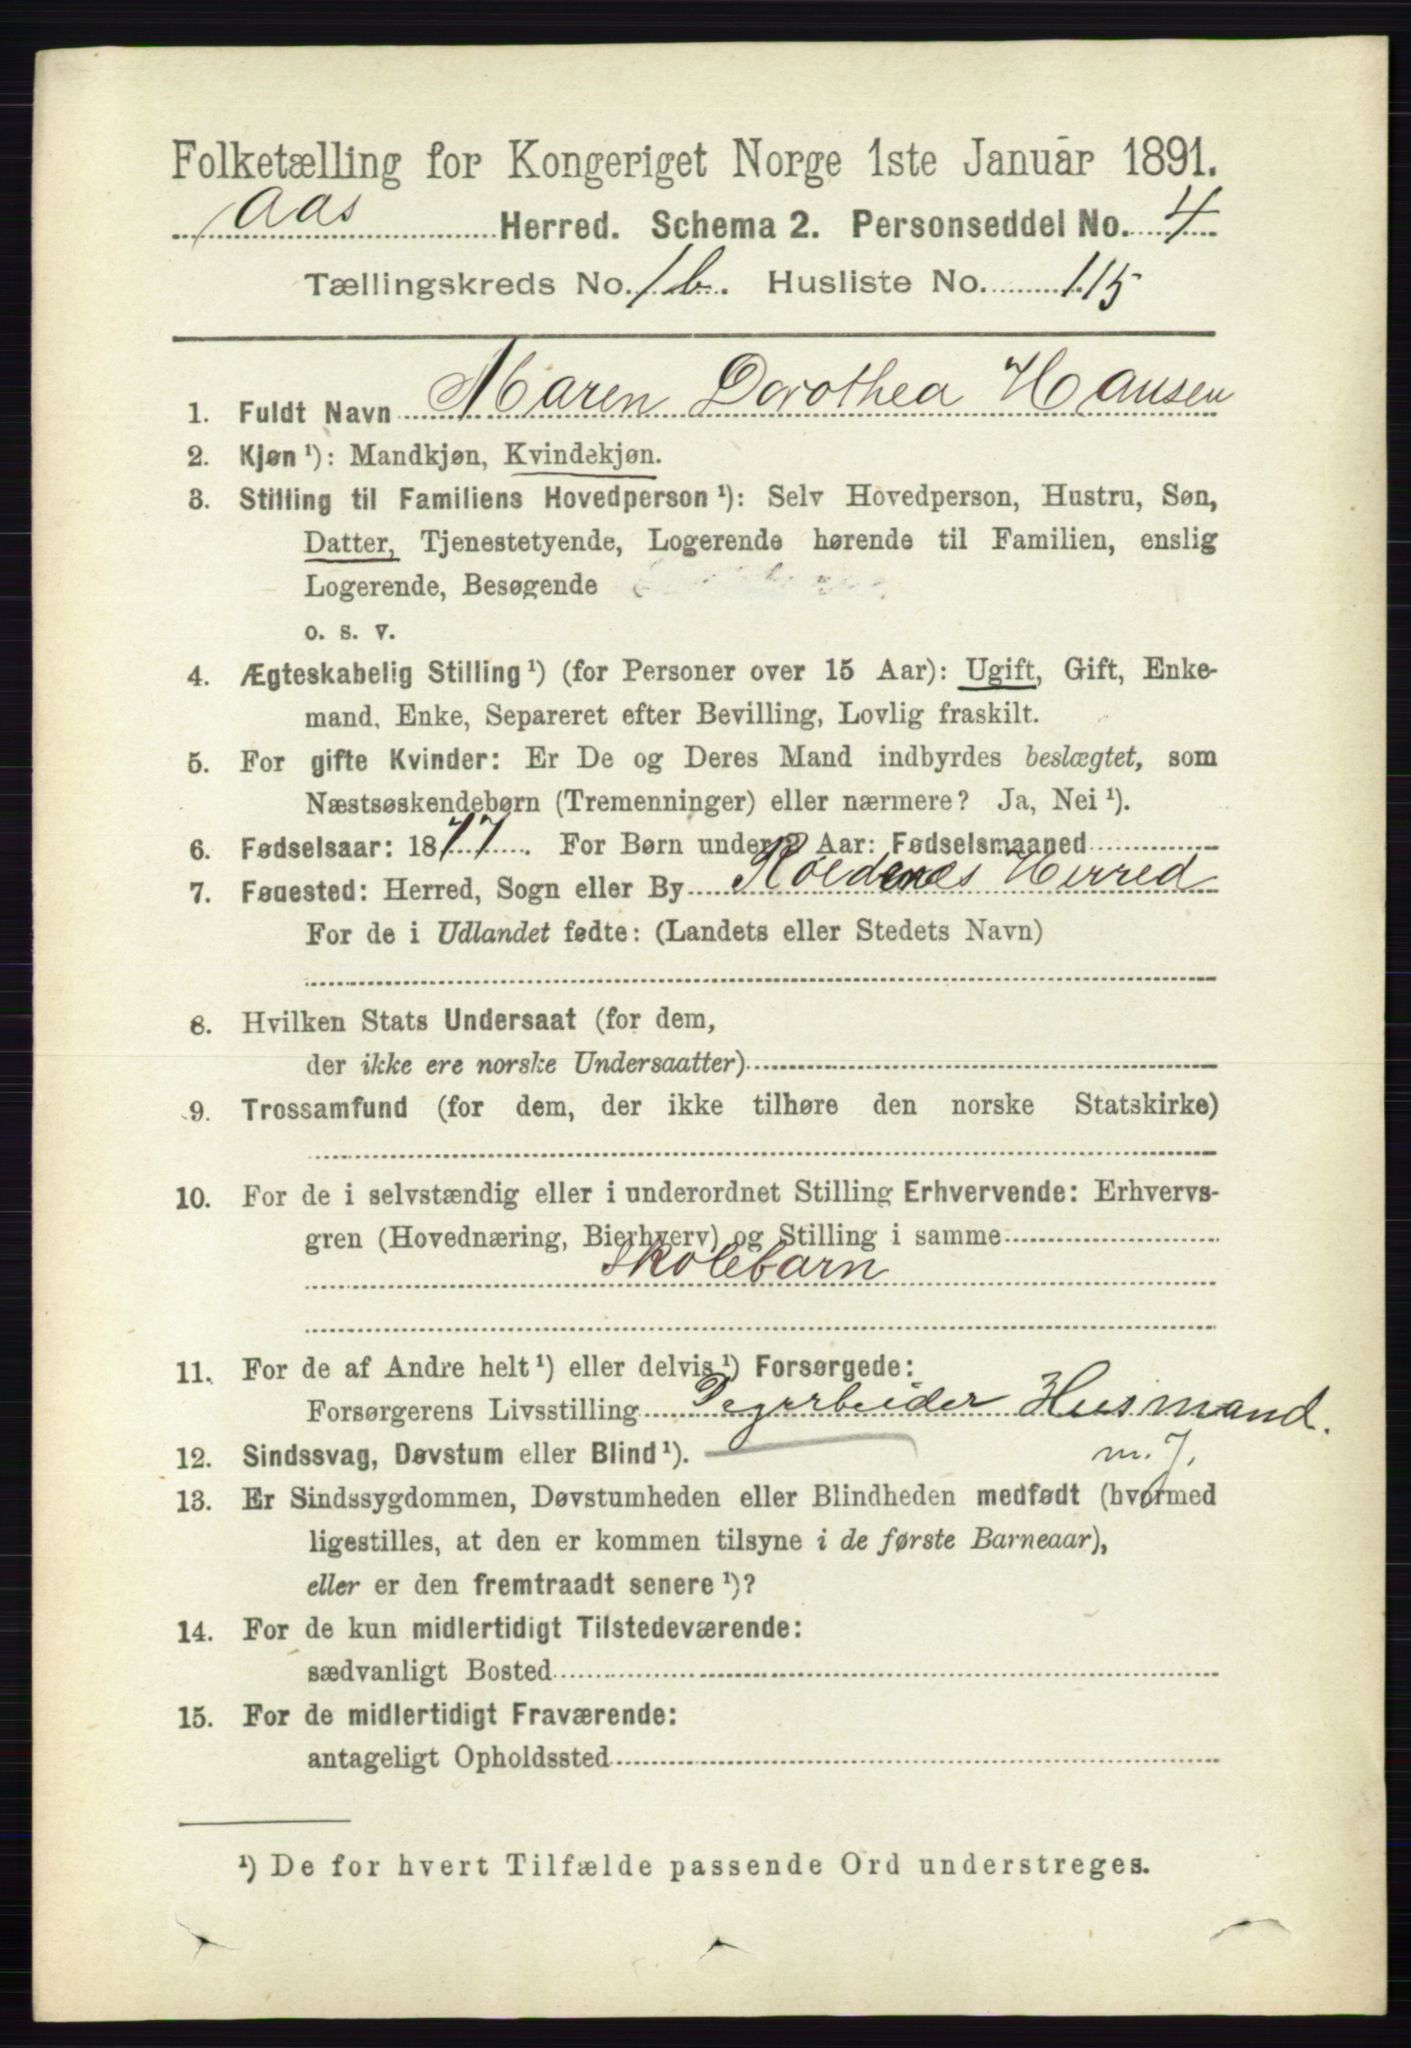 Folketælling for Kongeriget Norge 1ste Januar 1891.
Aas Herred. Schema 2. Personseddel No. 4
Tællingskreds No. 1b. Husliste No. 115
1. Fuldt Navn Maren Dorothea Hansen
2. Kjøn ¹): Mandkjøn, Kvindekjøn.
3. Stilling til Familiens Hovedperson ¹): Selv Hovedperson, Hustru, Søn,
Datter, Tjenestetyende, Logerende hørende til Familien, enslig
Logerende, Besøgende
o. s. v.
4. Ægteskabelig Stilling ¹) (for Personer over 15 Aar): Ugift, Gift, Enke-
mand, Enke, Separeret efter Bevilling, Lovlig fraskilt.
5. For gifte Kvinder: Er De og Deres Mand indbyrdes beslægtet, som
Næstsøskendebørn (Tremenninger) eller nærmere? Ja, Nei ¹).
6. Fødselsaar: 1877. For Børn under 2 Aar: Fødselsmaaned
7. Fødested: Herred, Sogn eller By Rødenæs Herred
For de i Udlandet fødte: (Landets eller Stedets Navn)
8. Hvilken Stats Undersaat (for dem,
der ikke ere norske Undersaatter)
9. Trossamfund (for dem, der ikke tilhøre den norske Statskirke)
10. For de i selvstændig eller i underordnet Stilling Erhvervende: Erhvervs-
gren (Hovednæring, Bierhverv) og Stilling i samme
Skolebarn
11. For de af Andre helt ¹) eller delvis ¹) Forsørgede:
Forsørgerens Livsstilling Dagarbeider Husmand.
12. Sindssvag, Døvstum eller Blind ¹). m. J.
13. Er Sindssygdommen, Døvstumheden eller Blindheden medfødt (hvormed
ligestilles, at den er kommen tilsyne i de første Barneaar),
eller er den fremtraadt senere ¹)?
14. For de kun midlertidigt Tilstedeværende:
sædvanligt Bosted
15. For de midlertidigt Fraværende:
antageligt Opholdssted
¹) De for hvert Tilfælde passende Ord understreges.